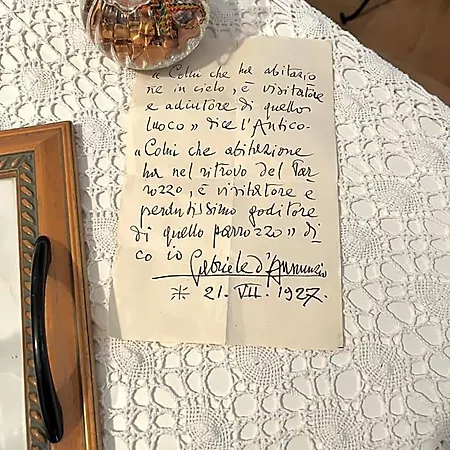 « Colui che ha abitazio
ne in cielo, è visitatore
e adiutore di quello
luoco » dice l'Antico.
« Colui che abitazione
ha nel ritrovo del Par
rozzo, è visitatore e
perdutissimo goditore
di quello parrozzo » di
co io Gabriele d'Annunzio
21. VII. 1927.